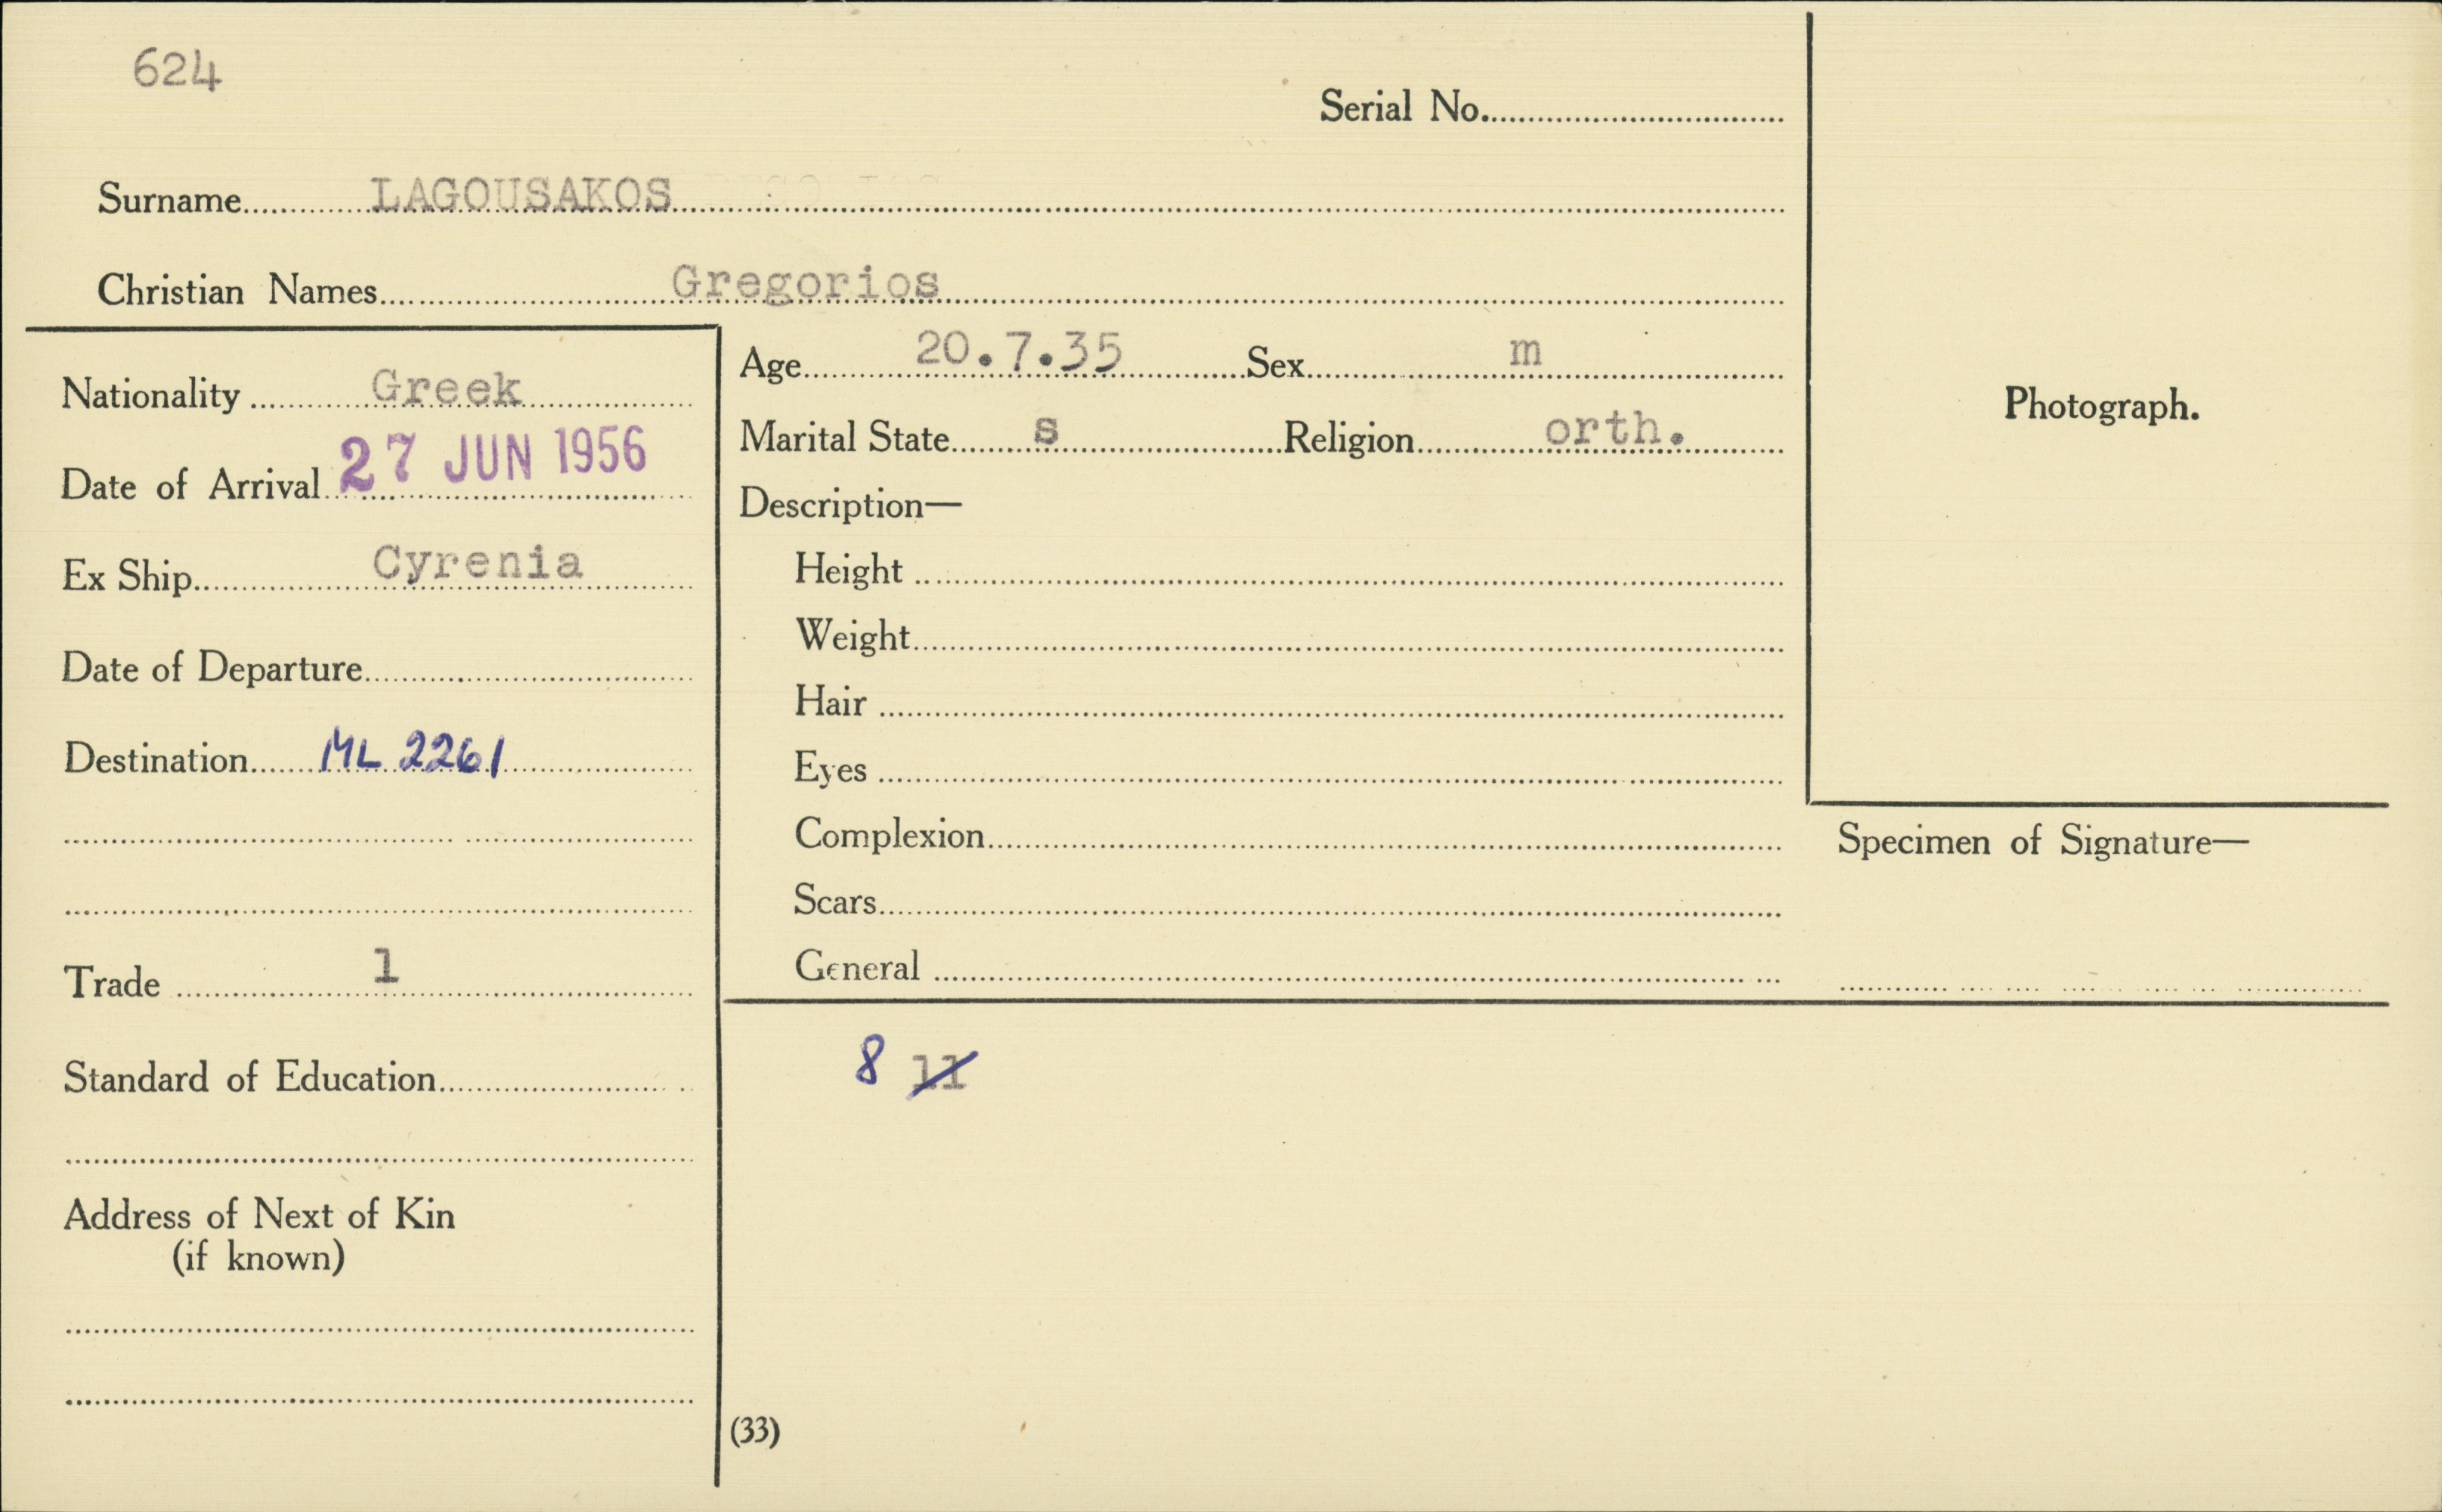 624
Serial No.
Surname LAGOUSAKOS
Christian Names Gregorios
Nationality Greek
Date of Arrival 27 JUN 1956
Ex Ship Cyrenia
Date of Departure
Destination ML 2261
Trade 1
Standard of Education
Address of Next of Kin
(if known)
Age 20.7.35 Sex m
Marital State s Religion orth.
Description—
Height
Weight
Hair
Eyes
Complexion
Scars
General
Photograph.
Specimen of Signature—
8 11
(33)